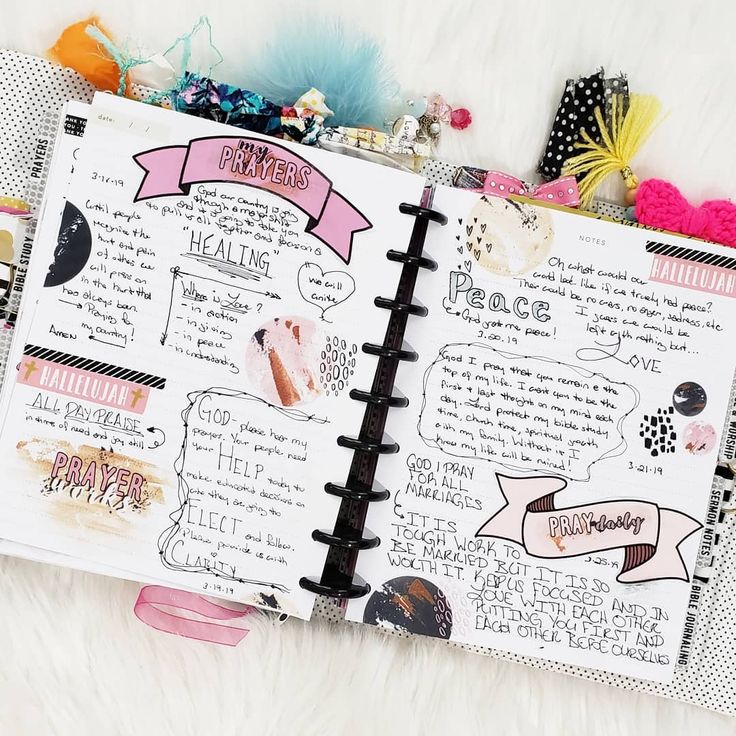 date: / /
my
PRAYERS
3-18-19
God our country is going
through a major shift
"HEALING"
Until people
recognize the
hurt and pain
of others we
will press on
in the hurt that
has always been.
Praying for
my country!
Amen
Where is Love?
- in action
- in giving
- in peace
- in understanding
We will
unite
HALLELUJAH
ALL DAY PRAISE
in times of need and joy still
PRAYER
works
GOD please hear my
prayers. Your people need
your HELP today to
make educated decisions on
who they are going to
ELECT and follow.
Please provide us with
CLARITY
3-19-19
NOTES
HALLELUJAH
Peace
God grant me peace!
3-20-19
Oh what would our
world look like if we truly had peace?
There would be no wars, no anger, sadness, etc
I guess we would be
left with nothing but...
LOVE
God I pray that you remain @ the
top of my life. I want you to be the
first & last thought on my mind each
day. Lord protect my bible study
time, church time, spiritual growth
with my family. Without it I
know my life will be ruined!
3-21-19
GOD I PRAY
FOR ALL
MARRIAGES
PRAY daily
3-25-19
IT IS
TOUGH WORK TO
BE MARRIED BUT IT IS SO
WORTH IT. KEEP US FOCUSED AND IN
LOVE WITH EACH OTHER
PUTTING YOU FIRST AND
EACH OTHER BEFORE OURSELVES
PRAYERS
BIBLE STUDY
WORSHIP
SERMON NOTES
BIBLE JOURNALING
THANK YOU